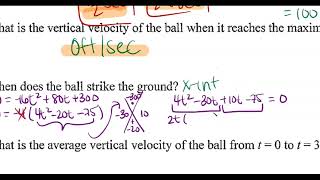 2sec
=100
hat is the vertical velocity of the ball when it reaches the maxim
0ft/sec
hen does the ball strike the ground? x-int
0 = -16t² + 80t + 300
0 = -4(4t² - 20t - 75)
-300
-30 10
-20
4t² - 30t + 10t - 75 = 0
2t(
hat is the average vertical velocity of the ball from t = 0 to t = 3